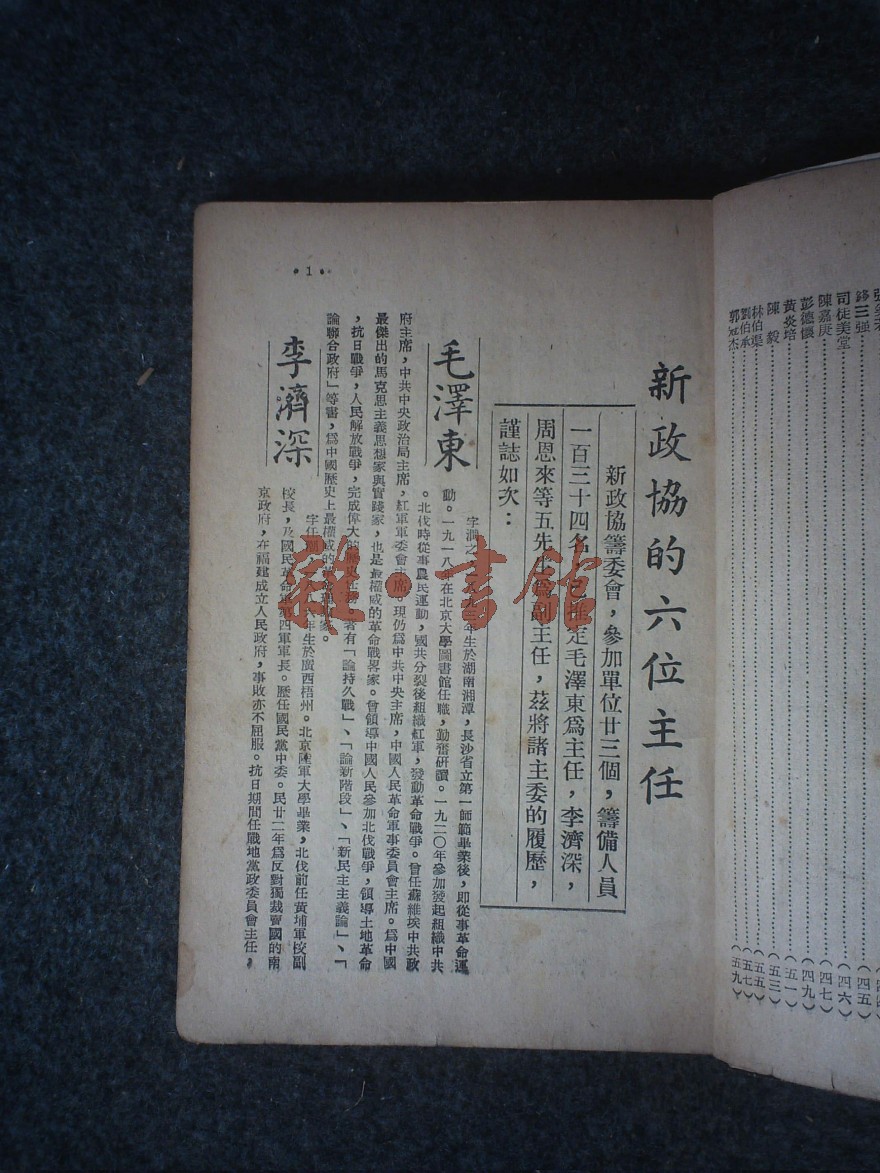 張
錢三强
司徒美堂……(四六)
陳嘉庚……(四七)
彭德懷……(四九)
黃炎培……(五一)
陳 毅……(五三)
林伯渠……(五五)
劉伯承……(五七)
郭 杰……(五九)
新政協的六位主任
新政協籌委會，參加單位廿三個，籌備人員
一百三十四名，已推定毛澤東爲主任，李濟深，
周恩來等五先生爲副主任，茲將諸主委的履歷，
謹誌如次：
毛澤東
字潤之，一八九三年生於湖南湘潭，長沙省立第一師範畢業後，即從事革命運
動。一九一八年在北京大學圖書館任職，勤奮研讀。一九二〇年參加發起組織中共
。北伐時從事農民運動，國共分裂後組織紅軍，發動革命戰爭。曾任蘇維埃中共政
府主席，中共中央政治局主席，紅軍軍委會主席。現仍爲中共中央主席，中國人民革命軍事委員會主席。爲中國
最傑出的馬克思主義思想家與實踐家，也是最權威的革命戰畧家。曾領導中國人民參加北伐戰爭，領導土地革命
，抗日戰爭，人民解放戰爭，完成偉大的任務。著有「論持久戰」、「論新階段」、「新民主主義論」、「
論聯合政府」等書，爲中國歷史上最權威的家。
李濟深
字任潮，一八八六年生於廣西梧州。北京陸軍大學畢業，北伐前任黃埔軍校副
校長，及國民革命軍第四軍軍長。歷任國民黨中委。民廿二年爲反對獨裁賣國的南
京政府，在福建成立人民政府，事敗亦不屈服。抗日期間任戰地黨政委員會主任，
•1•
雜·書館